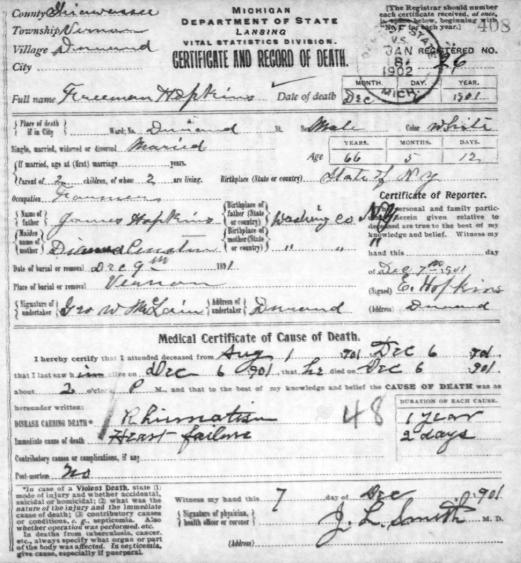 County Shiawassee MICHIGAN [The Registrar should number
Township Vernon DEPARTMENT OF STATE each certificate received, at once,
Village Durand LANSING in space below, beginning with
VITAL STATISTICS DIVISION. No. 1 for each year.] 408
City CERTIFICATE AND RECORD OF DEATH. REGISTERED NO. 26
JAN 8 1902 MICH.
MONTH. DAY. YEAR.
Full name Freeman Hopkins Date of death Dec 1901
{Place of death if in City} Ward; No. Durand St. Sex Male Color White
YEARS. MONTHS. DAYS.
Single, married, widowed or divorced Married Age 66 5 12
(If married, age at (first) marriage years.
{Parent of 2 children, of whom 2 are living. Birthplace (State or country) State of N.Y
Occupation Certificate of Reporter.
{Name of father} James Hopkins {Birthplace of father (State or country)} Washing Co. N.Y
{Maiden name of mother} {Birthplace of mother (State or country)} " " "
personal and family particulars herein given relative to deceased are true to the best of my knowledge and belief. Witness my
hand this day
Date of burial or removal Dec 9th 1891 of Dec 7th 1901
Place of burial or removal Vernon (Signed) E. Hopkins
{Signature of undertaker} Geo W McLain {Address of undertaker} Durand (Address) Durand
Medical Certificate of Cause of Death.
I hereby certify that I attended deceased from Aug 1 1901 Dec 6 1901
that I last saw him alive on Dec 6 1901, that he died on Dec 6 1901
about 2 o'clock P M., and that to the best of my knowledge and belief the CAUSE OF DEATH was as
hereunder written: DURATION OF EACH CAUSE.
DISEASE CAUSING DEATH* Rhumatism 48 1 year
Immediate cause of death Heart failure 2 days
Contributory causes or complications, if any
Post-mortem No
*In case of a Violent Death, state (1)
mode of injury and whether accidental,
suicidal or homicidal; (2) what was the
nature of the injury and the immediate
cause of death; (3) contributory causes
or conditions, e. g., septicemia. Also
whether operation was performed, etc.
In deaths from tuberculosis, cancer,
etc., always specify what organ or part
of the body was affected. In septicemia,
give cause, especially if puerperal.
Witness my hand this 7 day of Dec 1901
{Signature of physician, health officer or coroner} J. L. Smith M. D.
(Address)